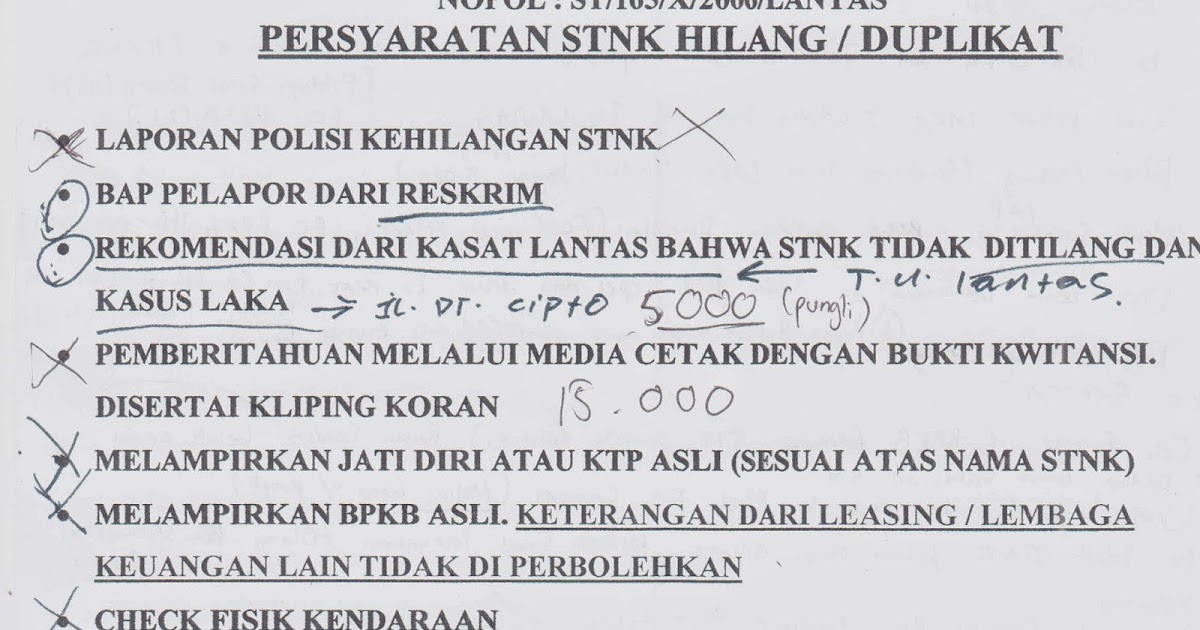 NOPOL : ST/165/X/2006/LANTAS
PERSYARATAN STNK HILANG / DUPLIKAT
• LAPORAN POLISI KEHILANGAN STNK
• BAP PELAPOR DARI RESKRIM
• REKOMENDASI DARI KASAT LANTAS BAHWA STNK TIDAK DITILANG DAN
← T.U lantas.
KASUS LAKA → Jl. Dr. cipto 5000 (pungli)
• PEMBERITAHUAN MELALUI MEDIA CETAK DENGAN BUKTI KWITANSI.
DISERTAI KLIPING KORAN 15.000
• MELAMPIRKAN JATI DIRI ATAU KTP ASLI (SESUAI ATAS NAMA STNK)
• MELAMPIRKAN BPKB ASLI. KETERANGAN DARI LEASING / LEMBAGA
KEUANGAN LAIN TIDAK DI PERBOLEHKAN
• CHECK FISIK KENDARAAN